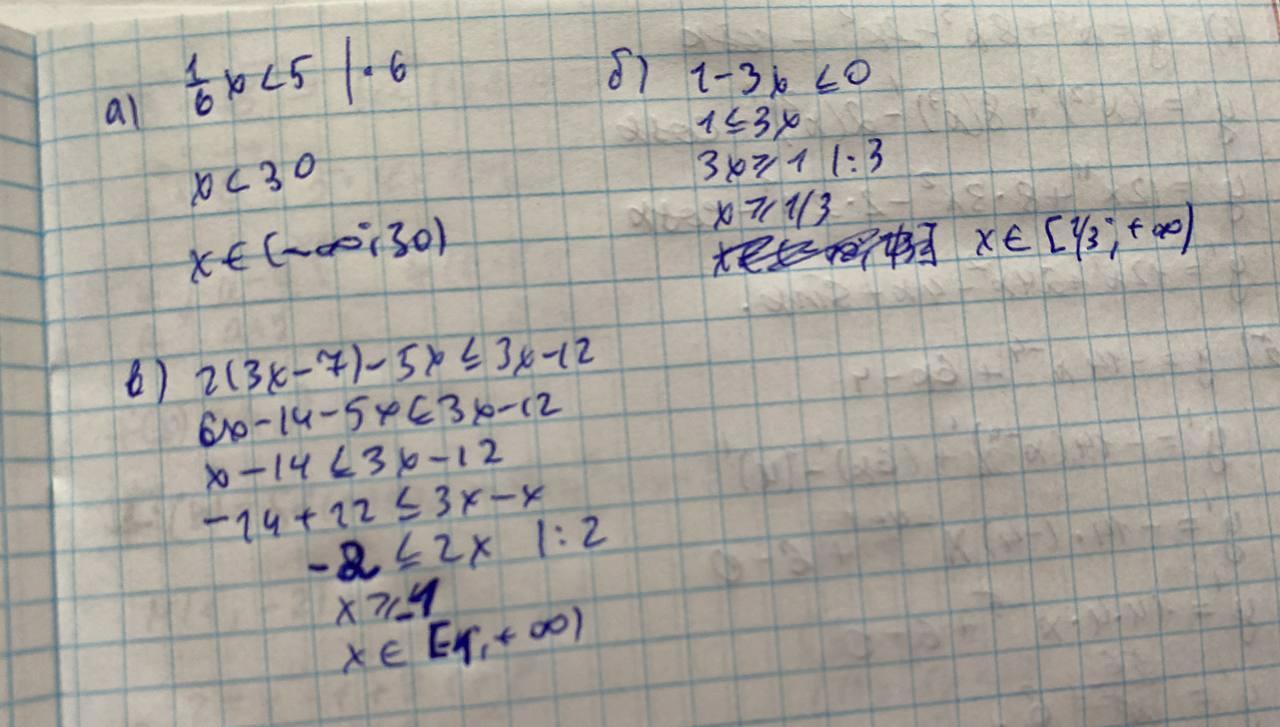 а) 1/6 x < 5 | · 6
x < 30
x ∈ (-∞; 30)
б) 1 - 3x ≤ 0
1 ≤ 3x
3x ≥ 1 | : 3
x ≥ 1/3
x ∈ [1/3; +∞)
в) 2(3x - 7) - 5x ≤ 3x - 12
6x - 14 - 5x ≤ 3x - 12
x - 14 ≤ 3x - 12
-14 + 12 ≤ 3x - x
-2 ≤ 2x | : 2
x ≥ -1
x ∈ [-1, +∞)